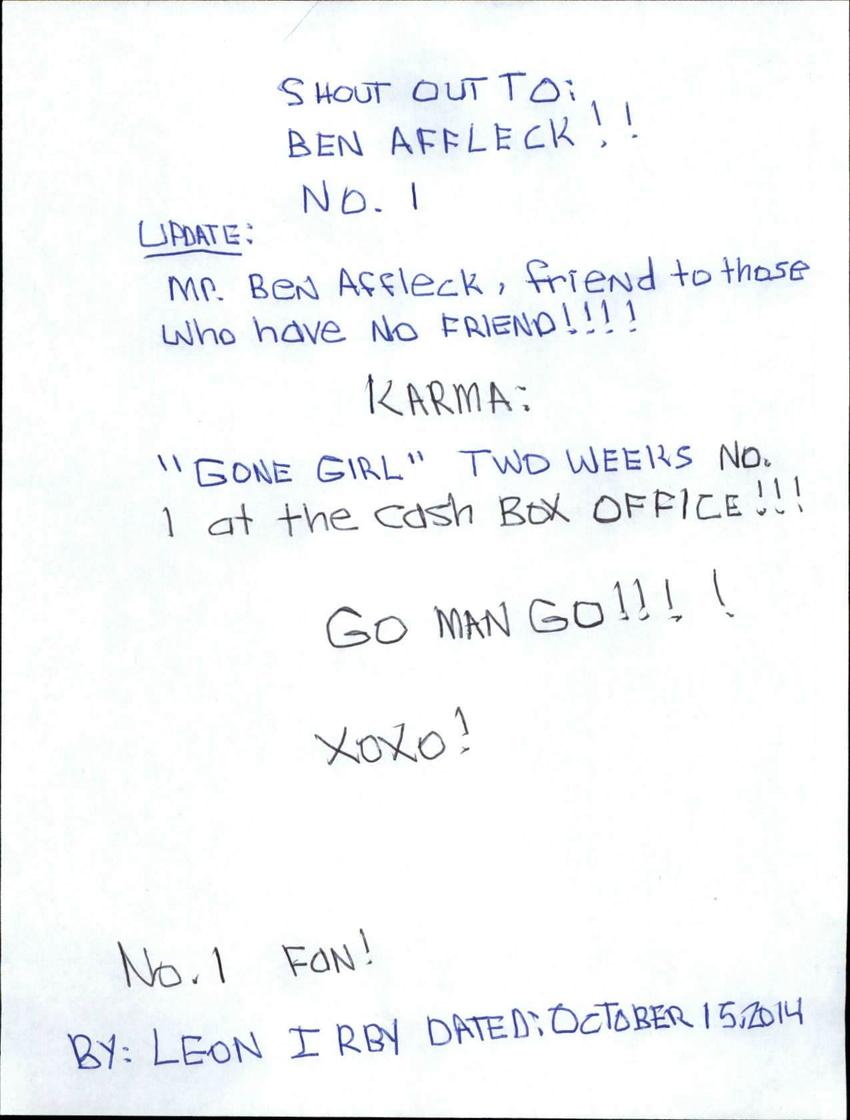 SHOUT OUT TO:
BEN AFFLECK!!
NO. 1
UPDATE:
Mr. BEN Affleck, friend to those
Who have NO FRIEND!!!!
KARMA:
"GONE GIRL" TWO WEEKS NO.
1 at the cash BOX OFFICE!!!
GO MAN GO!!! !
XOXO!
No. 1 FAN!
BY: LEON IRBY DATED: OCTOBER 15, 2014